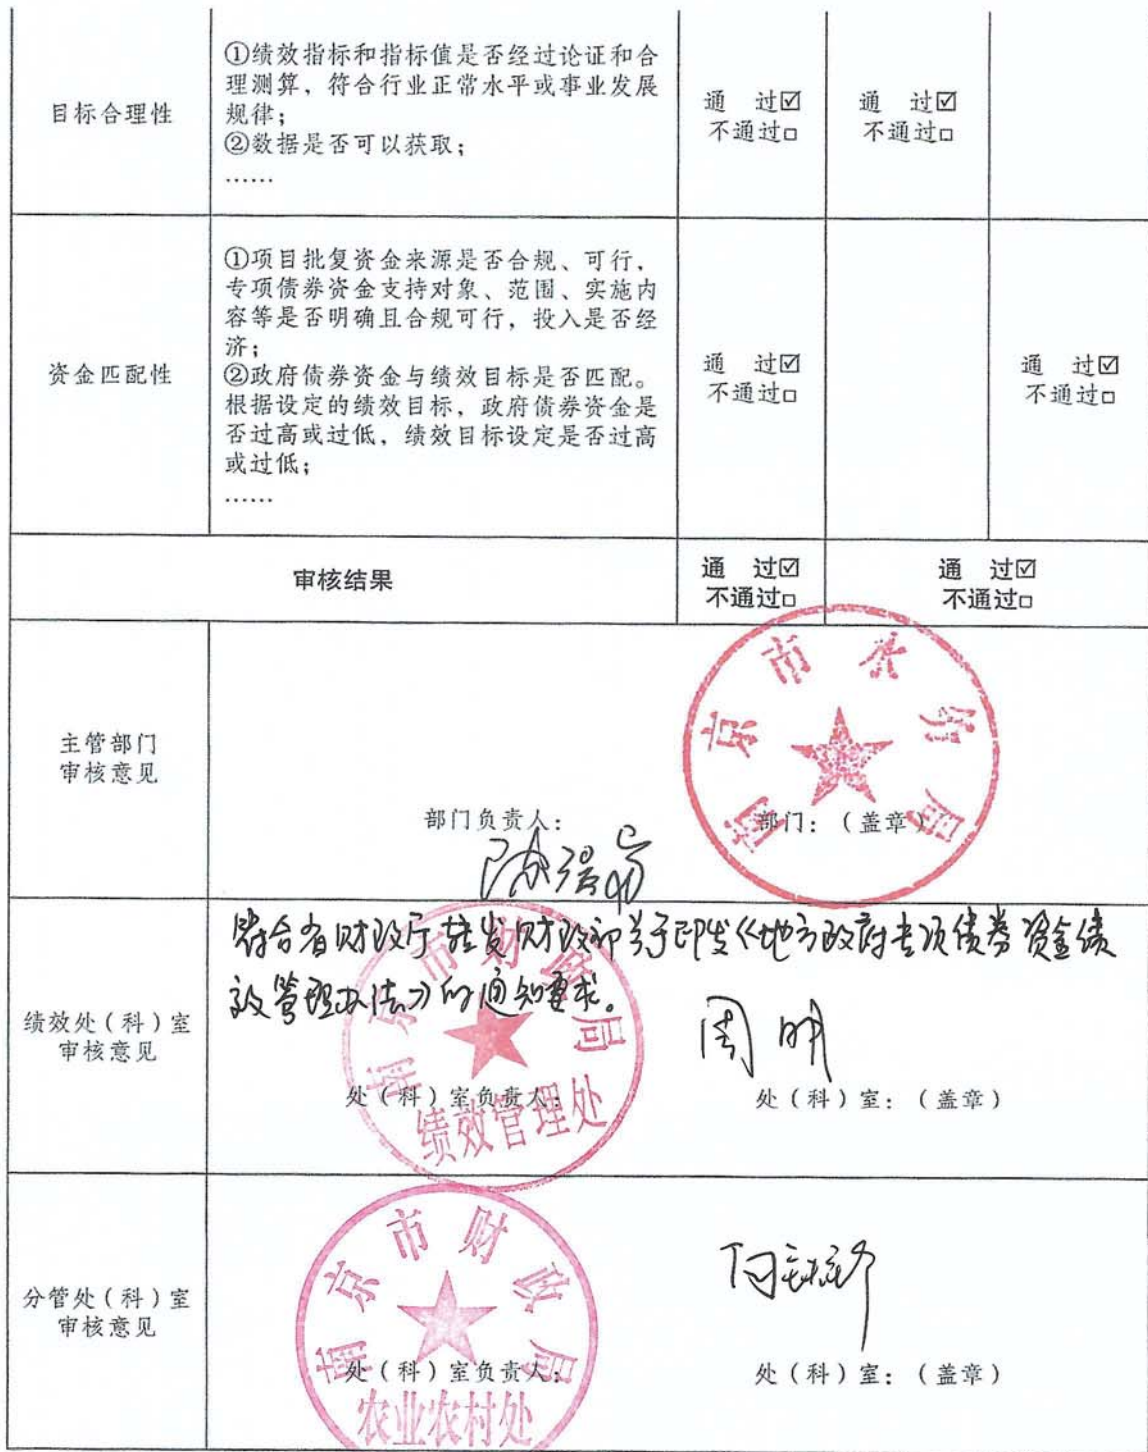 目标合理性
①绩效指标和指标值是否经过论证和合
理测算，符合行业正常水平或事业发展
规律；
②数据是否可以获取；
……
通 过☑
不通过□
通 过☑
不通过□
资金匹配性
①项目批复资金来源是否合规、可行，
专项债券资金支持对象、范围、实施内
容等是否明确且合规可行，投入是否经
济；
②政府债券资金与绩效目标是否匹配。
根据设定的绩效目标，政府债券资金是
否过高或过低，绩效目标设定是否过高
或过低；
……
通 过☑
不通过□
通 过☑
不通过□
审核结果
通 过☑
不通过□
通 过☑
不通过□
主管部门
审核意见
部门负责人：
部门：（盖章）
南京市水务局
绩效处（科）室
审核意见
符合省财政厅转发财政部关于印发《地方政府专项债券资金绩
效管理办法》的通知要求。
周明
处（科）室负责人：
处（科）室：（盖章）
南京市财政局
绩效管理处
分管处（科）室
审核意见
处（科）室负责人：
处（科）室：（盖章）
南京市财政局
农业农村处